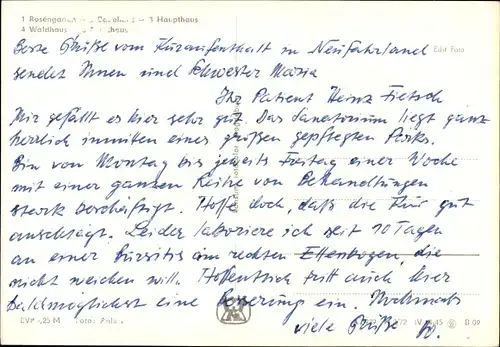 1 Rosengarten 3 Haupthaus
4 Waldhaus
Beste Grüße vom Kuraufenthalt in Neufahrland
Echt Foto
sendet Ihnen und Schwester Maria
Ihr Patient Heinz Fietsch
Mir gefällt es hier sehr gut. Das Sanatorium liegt ganz
herrlich inmitten eines großen gepflegten Parks.
Bin von Montag bis jeweils Freitag einer Woche
mit einer ganzen Reihe von Behandlungen
stark beschäftigt. Hoffe doch, daß die Kur gut
anschlägt. Leider laboriere ich seit 10 Tagen
an einer Bursitis am rechten Ellenbogen, die
nicht weichen will. Hoffentlich tritt auch hier
baldmöglichst eine Besserung ein. Nochmals
EVP 0,25 M Foto: B 09
viele Grüße